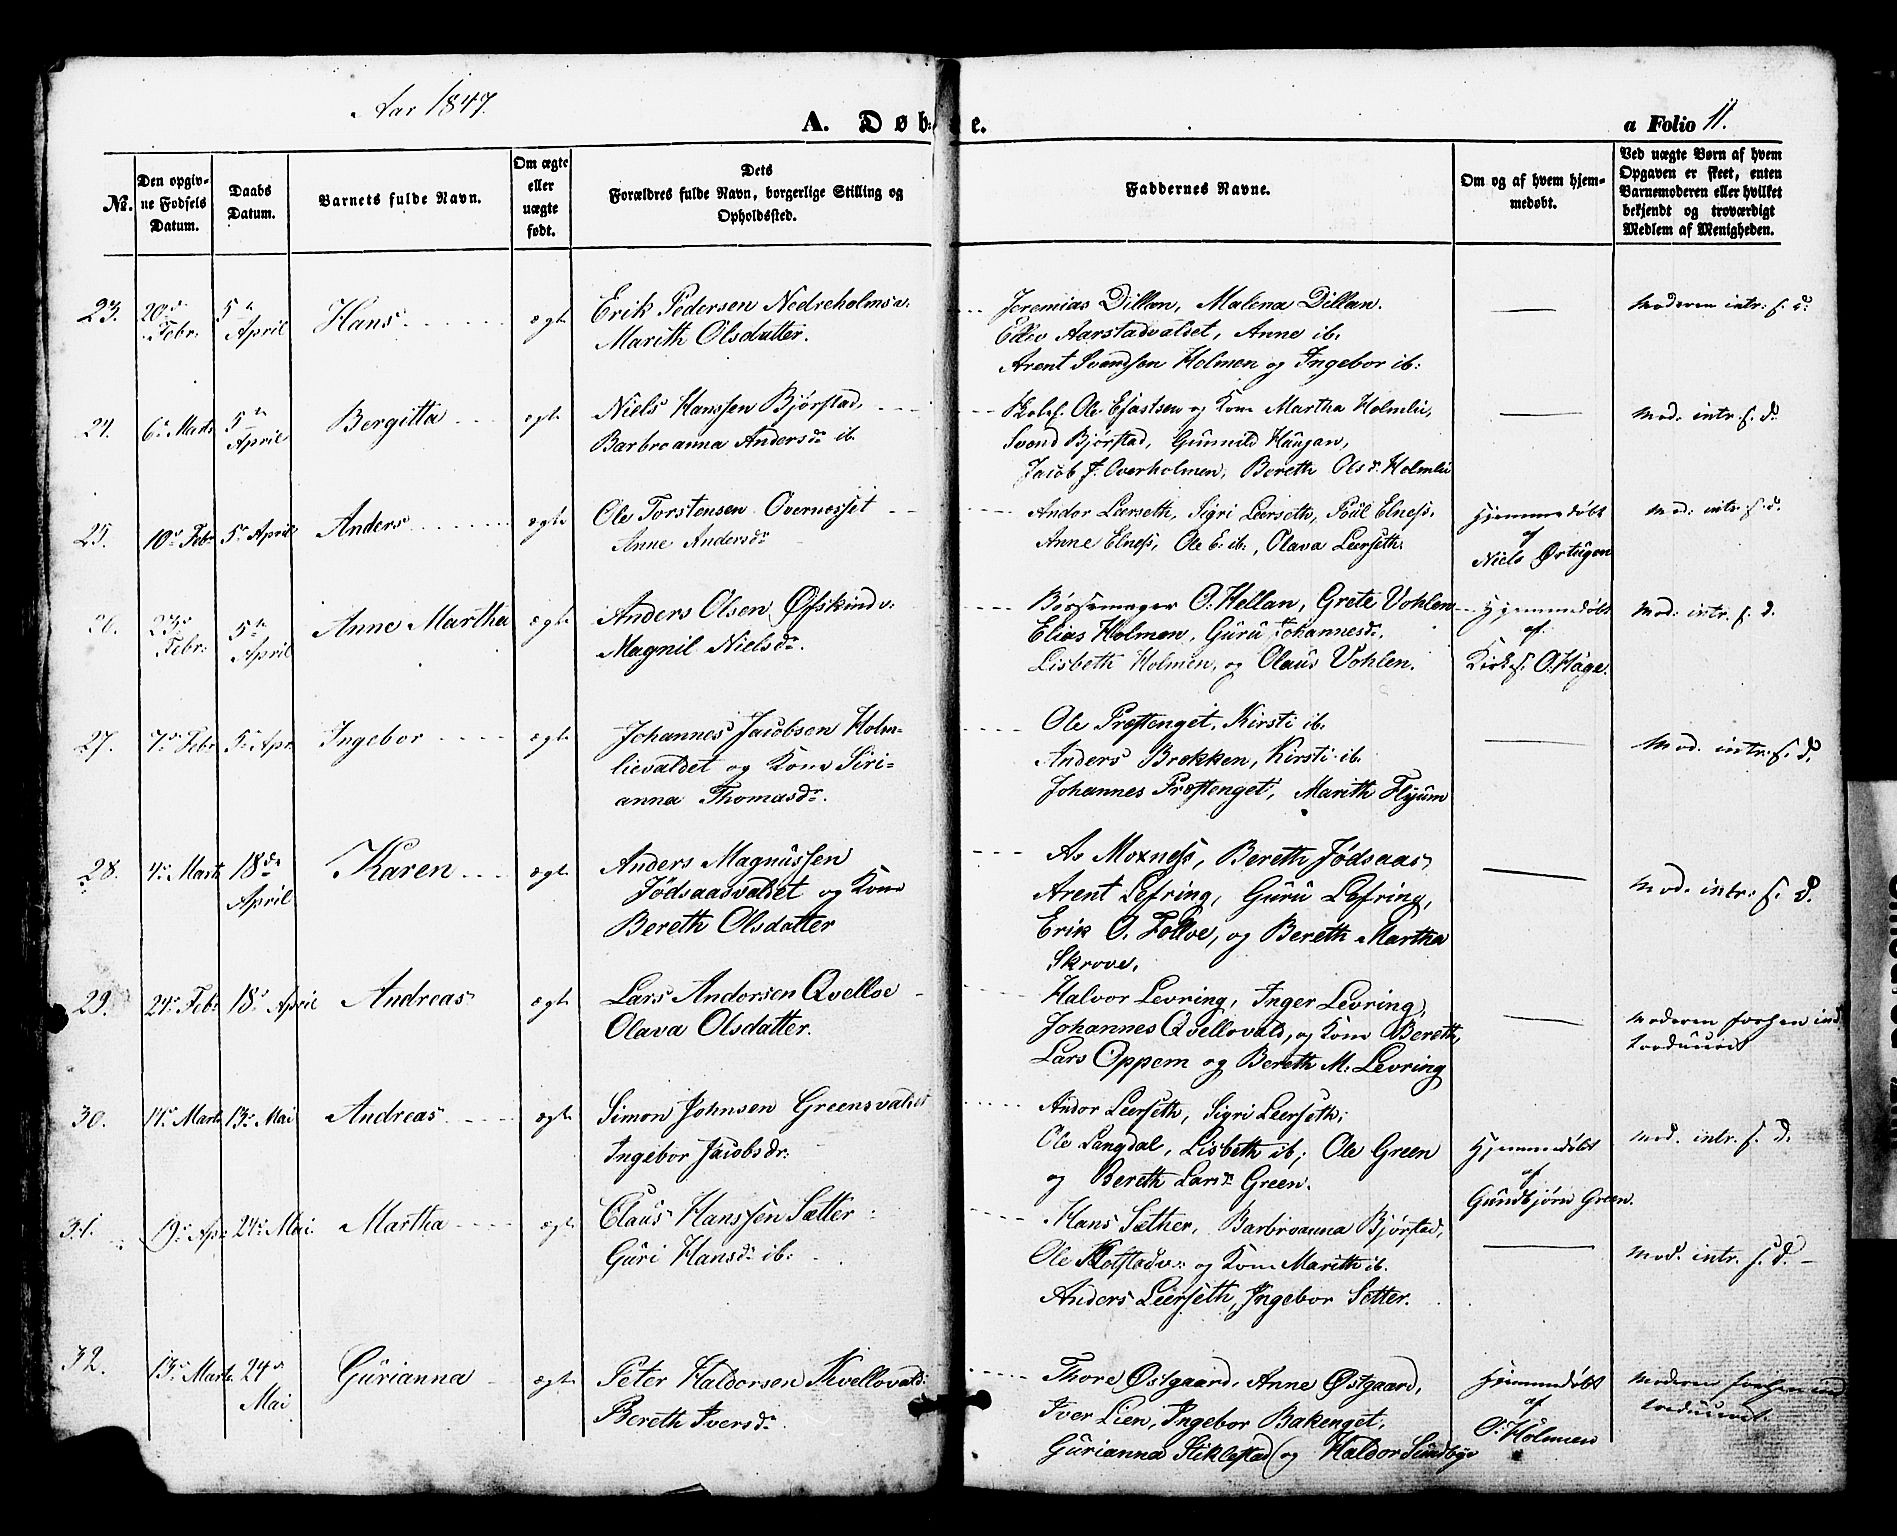 Aar 1847.
A. Døb e.
a Folio 11.
No.
Den opgiv-
ne Fødsels
Datum.
Daabs
Datum.
Barnets fulde Navn.
Om ægte
eller
uægte
født.
Dets
Forældres fulde Navn, borgerlige Stilling og
Opholdssted.
Faddernes Navne.
Om og af hvem hjem-
medøbt.
Ved uægte Børn af hvem
Opgaven er skeet, enten
Barnemoderen eller hvilket
bekjendt og troværdigt
Medlem af Menigheden.
23. 20de Febr. 5te April Hans ægte
Erik Pedersen Nedreholmsv.
Marith Olsdatter.
Jeremias Dillan, Malena Dillan.
Aarstadvaldet, Anne ib.
Arent Svendsen Holmen og Ingebor ib:
Moderen intr: s. d.
24. 6te Marts 5te April Bergitta ægte
Niels Hanssen Bjørstad,
Barbroanna Andersdr ib.
Ole og Kone Martha Holmlii,
Svend Bjørstad, Gunnild Haugan,
Jacob J. Overholmen, Bereth Olsdr Holmlii
Mod: intr. s. d.
25. 10de Febr 5te April Anders ægte
Ole Torstensen Overnesset
Anne Andersdr
Andor Leerseth, Sigri Leerseth, Poul Elness,
Anne Elness, Ole E. ib., Olava Leerseth.
Hjemmedøbt
af
Niels Østugan
Mod: intr s. d.
26. 23de Febr: 5te April Anne Martha ægte
Anders Olsen Øfskindv:
Magnil Nielsdr.
Børsemager O. Hellan, Grete Vohlen
Elias Holmen, Guru Johannesdr,
Lisbeth Holmen, og Olaus Vohlen.
Hjemmedøbt
af
Kirkes. O. Hage.
Mod: intr: s. d.
27. 7de Febr 5te Apr. Ingebor ægte
Johannes Jacobsen Holm-
lievaldet og Kone Siri-
anna Thomasdr.
Ole Præstenget, Kirsti ib.
Anders Brekken, Kirsti ib.
Johannes Præstenget, Marith Flyum
Mod. intr: s. d.
28. 4de Marts 18de April Karen ægte
Anders Magnussen
Jødsaasvaldet og Kone
Bereth Olsdatter
A. Moxness, Bereth Jødsaas,
Arent Lefring, Guru Lefring,
Erik O. Tollve, og Bereth Martha
Skrove.
Mod. intr: s. d.
29. 24de Febr 18de April Andreas ægte
Lars Andersen Qvelloe
Olava Olsdatter.
Halvor Levring, Inger Levring,
Johannes Qvellovald, og Kone Bereth,
Lars Oppem og Bereth M. Levring
Moderen forhen ind
30. 14de Marts 13de Mai Andreas ægte
Simon Johnsen Greensvaldet
Ingebor Jacobsdr:
Andor Leerseth, Sigri Leerseth;
Ole Langdal, Lisbeth ib; Ole Green
og Bereth Larsdr Green.
Hjemmedøbt
af
Gundbjørn Green.
Mod. intr. s. d.
31. 19de Apr 24de Mai. Martha ægte
Claus Hanssen Sætter
Guri Hansdr ib:
Hans Sæther, Barbroanna Bjørstad,
Ole og Kone Marith ib.
Anders Leerseth, Ingebor Setter.
Mod. intr. s. d.
32. 13de Marts 24de Mai Gurianna ægte
Peter Haldorsen Kvellovald:
Bereth Iversdr
Thore Østgaard, Anne Østgaard,
Iver Lien, Ingebor Bakenget,
Gurianna Stiklestad og Haldor Sundbye
Hjemmedøbt
af
O. Holmen
Moderen forhen ind